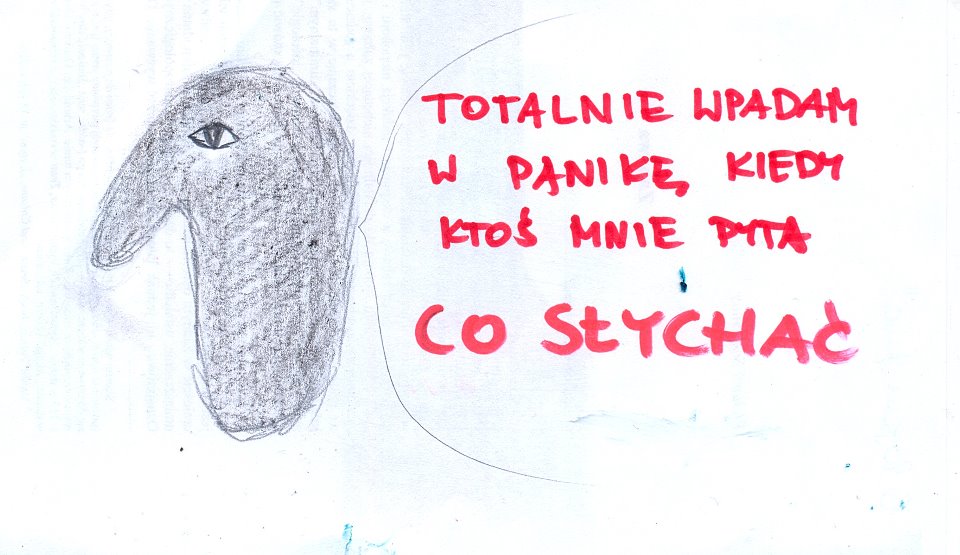 TOTALNIE WPADAM
W PANIKĘ, KIEDY
KTOŚ MNIE PYTA
CO SŁYCHAĆ